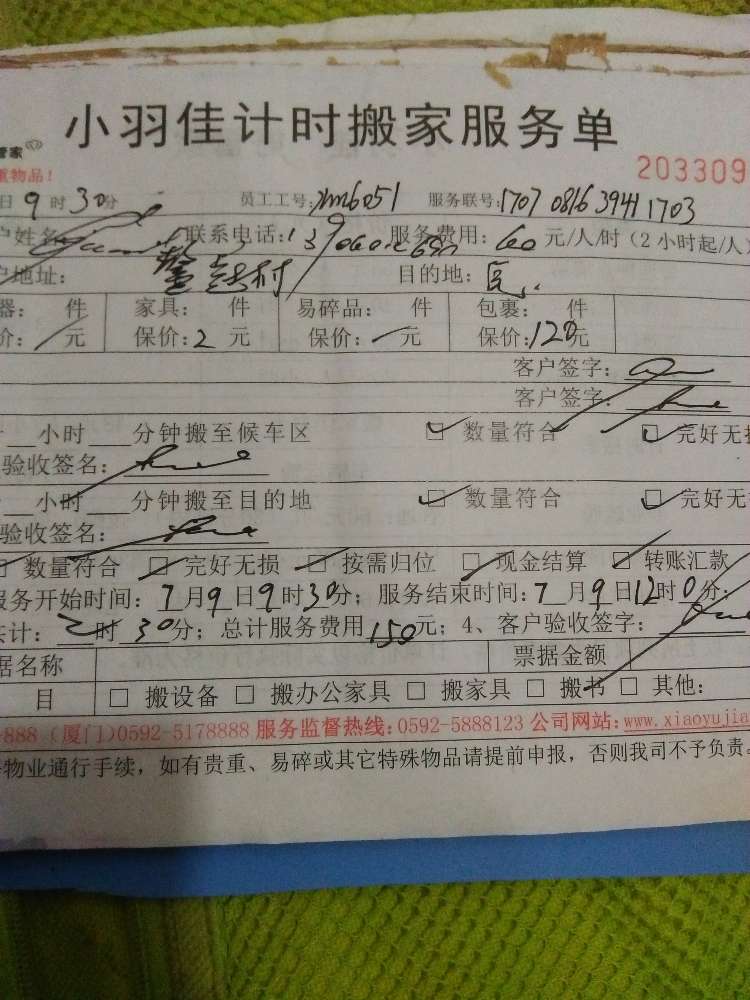 小羽佳计时搬家服务单
管家
重物品！
203309
日9时30分 员工工号：xm6051 服务联号：1707 0816 3941 1703
户姓名 联系电话： 服务费用：60元/人/时（2小时起/人）
户地址： 村 目的地：
器： 件 家具： 件 易碎品： 件 包裹： 件
价：/元 保价：2元 保价：/元 保价：120元
客户签字：
客户签字：
小时 分钟搬至候车区 ☑ 数量符合 ☑ 完好无损
验收签名：
小时 分钟搬至目的地 ☑ 数量符合 ☑ 完好无
验收签名：
数量符合 ☑ 完好无损 ☑ 按需归位 ☑ 现金结算 ☑ 转账汇款
服务开始时间：7月9日9时30分；服务结束时间：7月9日12时0分；
共计：2时30分；总计服务费用150元；4、客户验收签字：
据名称 票据金额
目 □ 搬设备 □ 搬办公家具 □ 搬家具 □ 搬书 □ 其他：
888（厦门）0592-5178888 服务监督热线：0592-5888123 公司网站：www.xiaoyujia
物业通行手续，如有贵重、易碎或其它特殊物品请提前申报，否则我司不予负责。